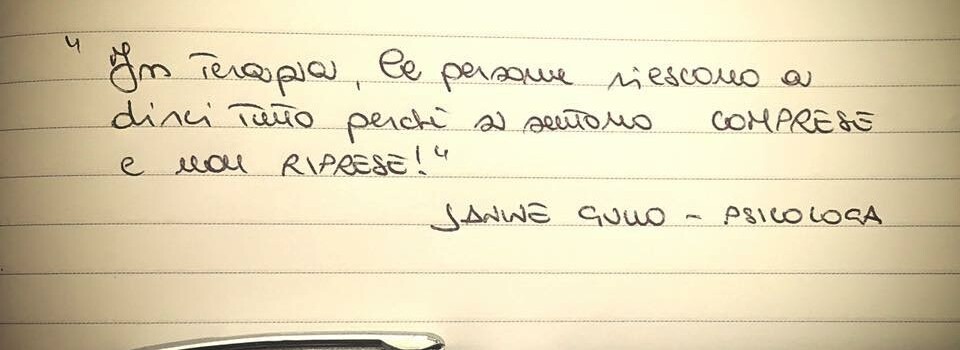 " In Terapia, le persone riescono a
dirci Tutto perchè si sentono COMPRESE
e non RIPRESE! "
JANINE GULLO - PSICOLOGA